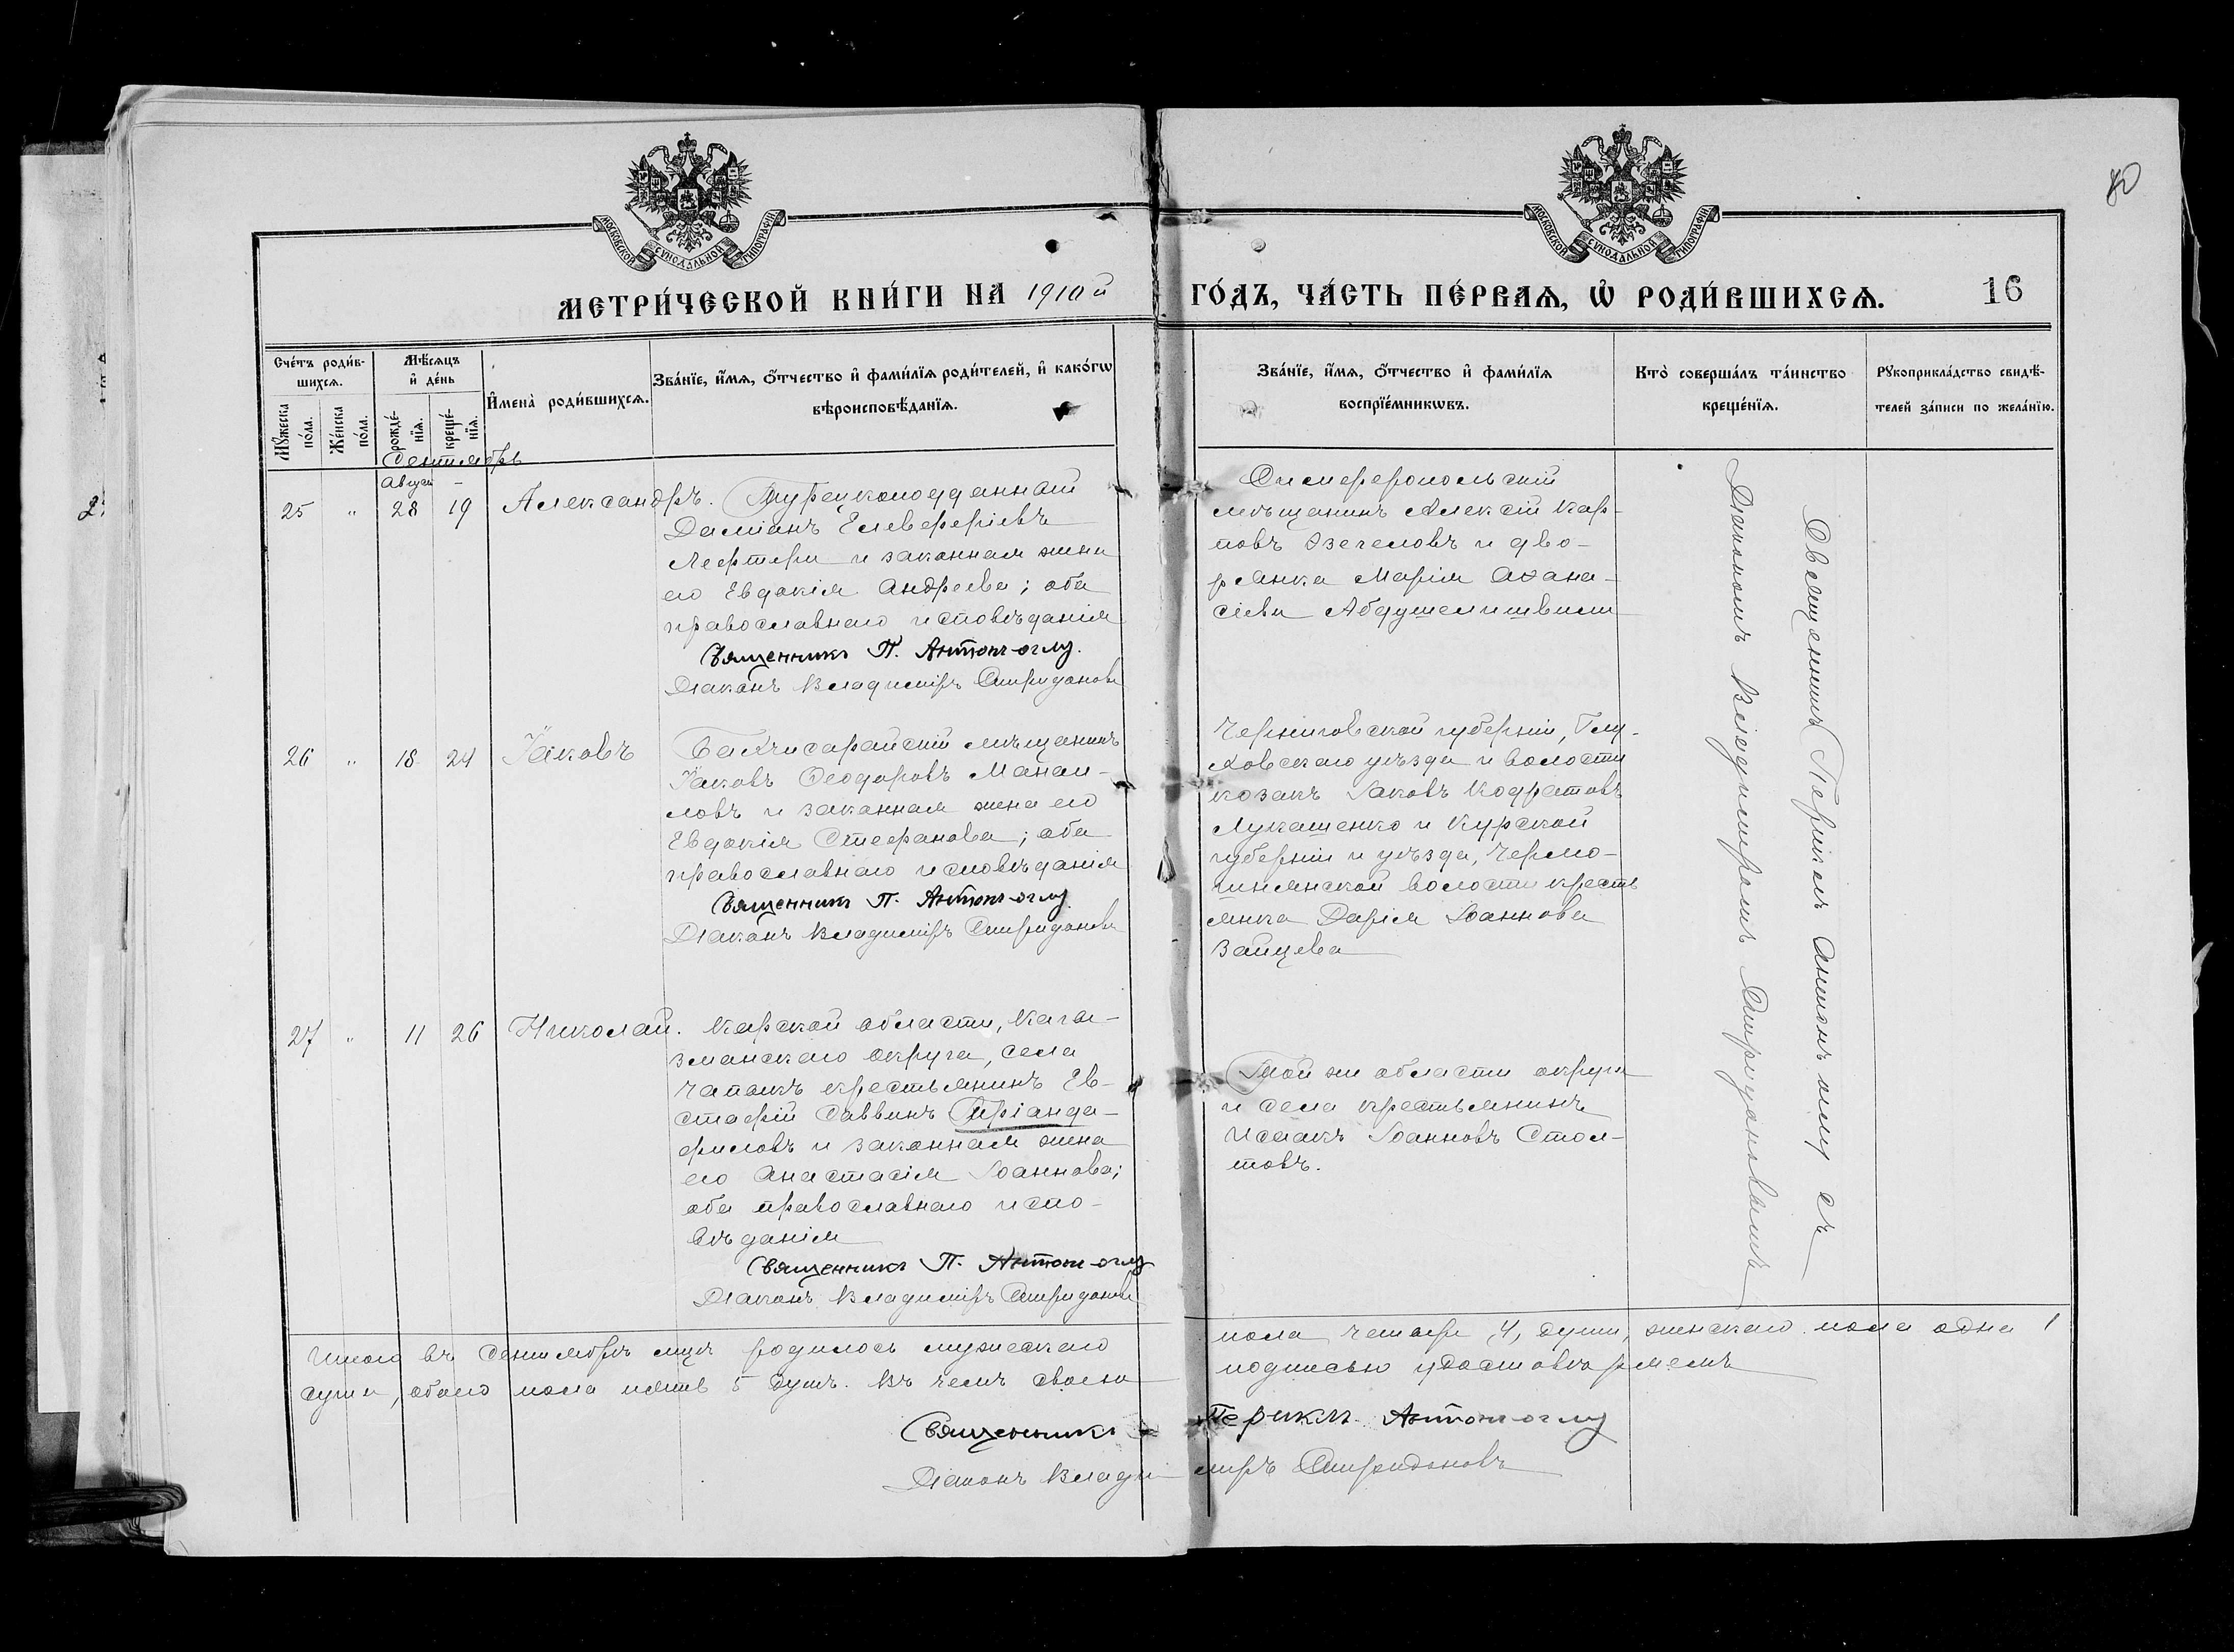 МОСКОВСКОЙ СѴНОДАЛЬНОЙ ТИПОГРАФІИ
МОСКОВСКОЙ СѴНОДАЛЬНОЙ ТИПОГРАФІИ
80
МЕТРИ́ЧЕСКОЙ КНИ́ГИ НА 1910й
ГО́ДЪ, ЧА́СТЬ ПЕ́РВАѦ, Ѡ҆ РОДИ́ВШИХСѦ.
16
Сче́тъ роди́в-
шихсѧ.
Мꙋ́жеска
по́ла.
Же́нска
по́ла.
Мѣ́сѧцъ
и҆ де́нь
рожде́-
нїѧ.
креще́-
нїѧ.
И҆мена̀ роди́вшихсѧ.
Зва́нїе, и҆́мѧ, ѻ҆́тчество и҆ фами́лїѧ роди́телей, и҆ како́гѡ
вѣроисповѣ́данїѧ.
Зва́нїе, и҆́мѧ, ѻ҆́тчество и҆ фами́лїѧ
воспрїе́мникѡвъ.
Кто̀ соверша́лъ та́инство
креще́нїѧ.
Рꙋкоприкла́дство свидѣ́-
телей за́писи по жела́нїю.
Сентябрь
Август –
25 " 28 19 Александръ.
Турецкоподданный
Даміанъ Елевферіевъ
Лефтери и законная жена
его Евдокія Андреева; оба
православнаго исповѣданія
Священникъ П. Антонъ-оглу.
Діаконъ Владиміръ Спиридоновъ
Симферопольскій
мѣщанинъ Алексій Кар-
повъ и дво-
рянка Марія Аѳана-
сіева
26 " 18 24 Іаковъ
Бахчисарайскій мѣщанинъ
Іаковъ Ѳеодоровъ Манаи-
ловъ и законная жена его
Евдокія Стефанова; оба
православнаго исповѣданія
Священникъ П. Антонъ-оглу.
Діаконъ Владиміръ Спиридоновъ
Черниговской губерніи, Глу-
ховскаго уѣзда и волости
козакъ Іаковъ Кодратовъ
Лукашенко и Курской
губерніи и уѣзда,
волости кресть
янка Дарія Іоаннова
Зайцева
27 " 11 26 Николай.
Карской области, Кагы-
зманскаго округа, села
Чапыкъ крестьянинъ Ев-
стафій Саввинъ Тріанда-
филовъ и законная жена
его Анастасія Іоаннова;
оба православнаго испо-
вѣданія
Священникъ П. Антонъ-оглу
Діаконъ Владиміръ Спиридоновъ
Той же области округа
и села крестьянинъ
Исаакъ Іоанновъ Стоя-
товъ.
Священникъ Периклъ Антонъ оглу съ
Діакономъ Владиміромъ Спиридоновымъ
Итого въ Сентябрѣ мцѣ родилось мужескаго
пола четыре 4, души, женскаго пола одна 1
душа, обоего пола пять 5 душъ. Въ чемъ своею
подписью удостовѣряемъ
Священникъ Периклъ Антонъ-оглу
Діаконъ Владиміръ Спиридоновъ